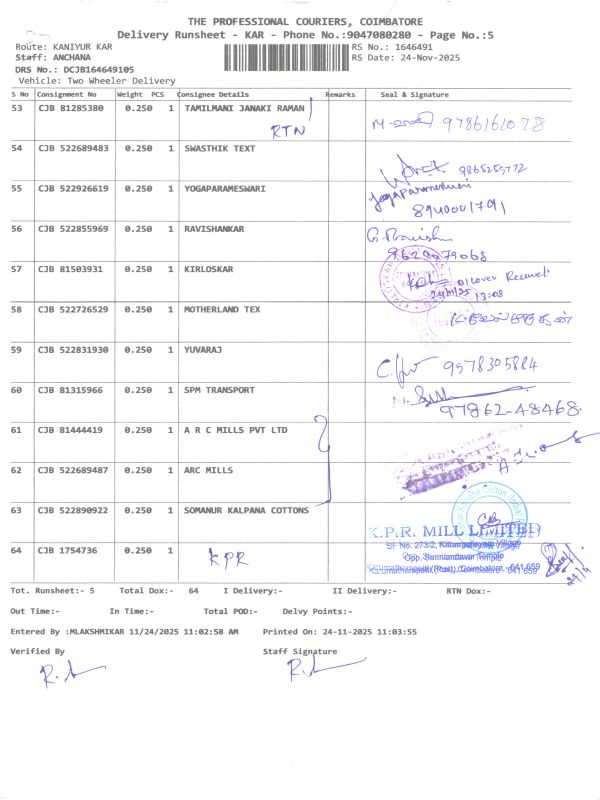 THE PROFESSIONAL COURIERS, COIMBATORE
Delivery Runsheet - KAR - Phone No.:9047080280 - Page No.:5
Route: KANIYUR KAR RS No.: 1646491
Staff: ANCHANA RS Date: 24-Nov-2025
DRS No.: DCJB164649105
Vehicle: Two Wheeler Delivery
S No Consignment No Weight PCS Consignee Details Remarks Seal & Signature
53 CJB 81285380 0.250 1 TAMILMANI JANAKI RAMAN
RTN 9786161028
54 CJB 522689483 0.250 1 SWASTHIK TEXT
9865255772
55 CJB 522926619 0.250 1 YOGAPARAMESWARI Yogaparameshwari
8940001791
56 CJB 522855969 0.250 1 RAVISHANKAR
9629079068
57 CJB 81503931 0.250 1 KIRLOSKAR
13:08
58 CJB 522726529 0.250 1 MOTHERLAND TEX
59 CJB 522831930 0.250 1 YUVARAJ
9578305884
60 CJB 81315966 0.250 1 SPM TRANSPORT
97862-48468
61 CJB 81444419 0.250 1 A R C MILLS PVT LTD
62 CJB 522689487 0.250 1 ARC MILLS
63 CJB 522890922 0.250 1 SOMANUR KALPANA COTTONS
K.P.R. MILL LIMITED
SF No. 273/2, Kittampalayam Village
64 CJB 1754736 0.250 1 KPR
Tot. Runsheet:- 5 Total Dox:- 64 I Delivery:- II Delivery:- RTN Dox:-
Out Time:- In Time:- Total POD:- Delvy Points:-
Entered By :MLAKSHMIKAR 11/24/2025 11:02:58 AM Printed On: 24-11-2025 11:03:55
Verified By Staff Signature